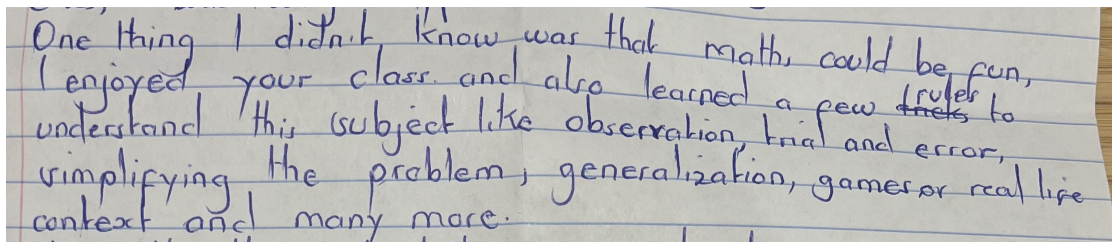 One thing I didn't know was that math, could be fun,
I enjoyed your class. and also learned a few rules to
understand this subject like observation, trial and error,
simplifying the problem, generalization, games or real life
context and many more.